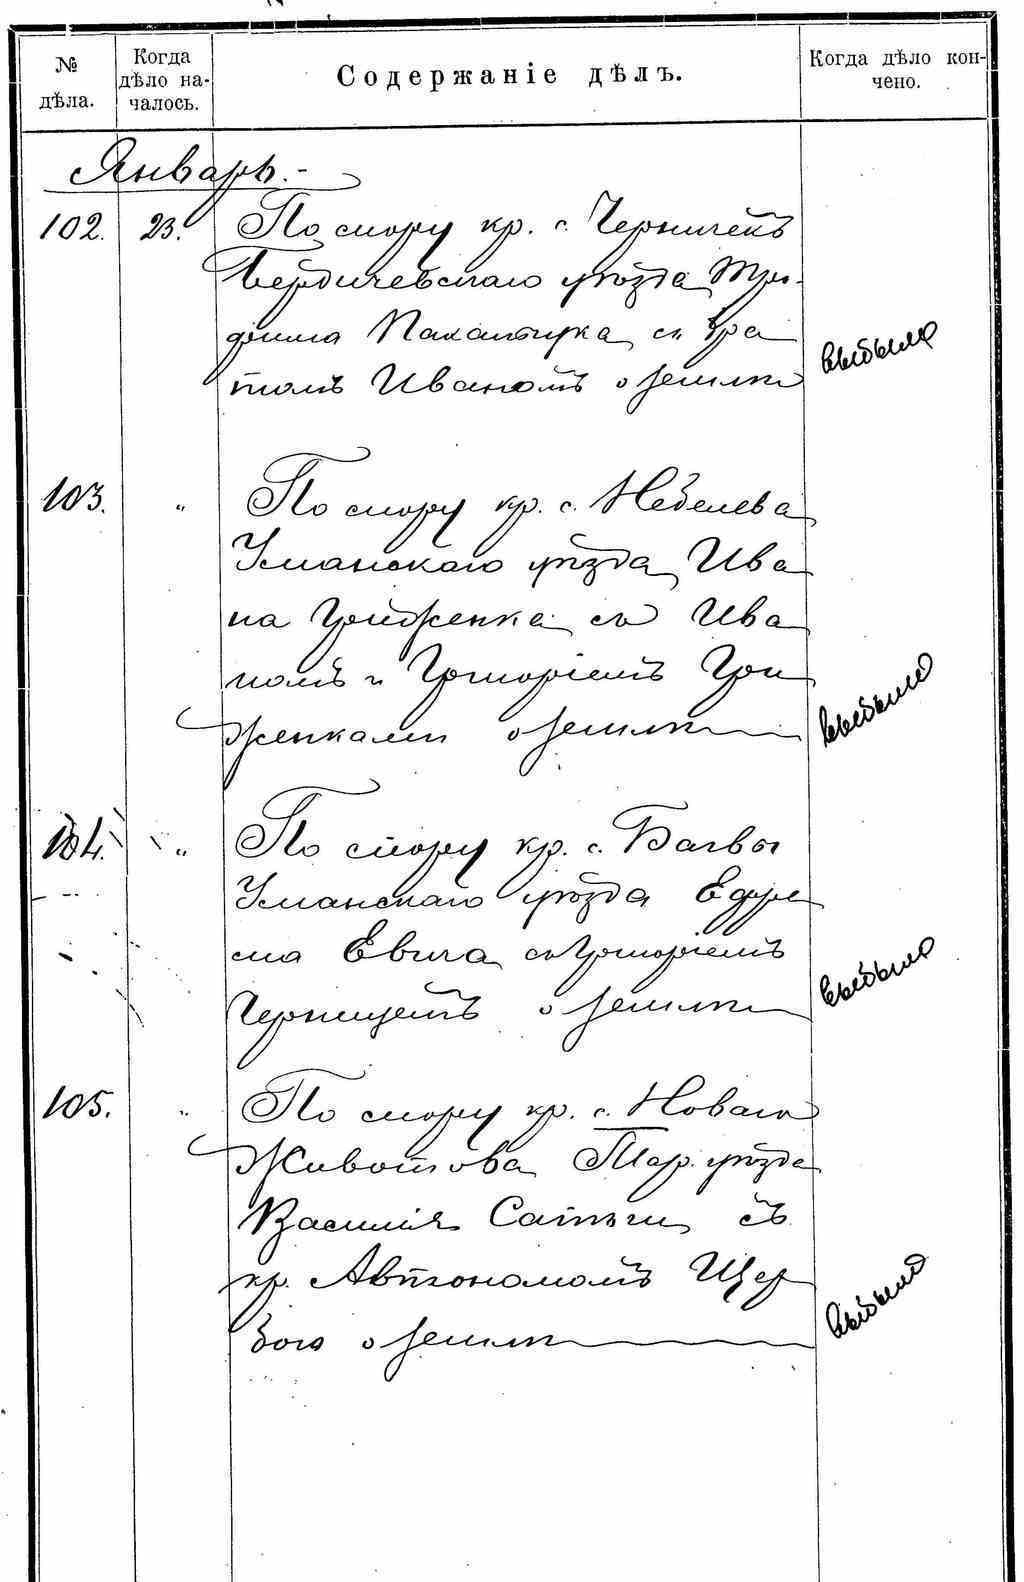 № дѣла.
Когда дѣло на-
чалось.
Содержаніе дѣлъ.
Когда дѣло кон-
чено.
Январь.-
102. 23. По спору кр. с. Черничекъ
Бердичевскаго уѣзда
съ бра
томъ Иваномъ о землѣ
выбыло
103. " По спору кр. с. Небелева
Уманскаго уѣзда Ива
на Гриженка съ Ива
номъ и Григоріемъ Гри
женками о землѣ
выбыло
104. " По спору кр. с. Багвы
Уманскаго уѣзда Ефре
ма съ Григоріемъ
о землѣ
выбыло
105. " По спору кр. с. Новаго
Животова Тар. уѣзда
Василія съ
кр. Автономомъ Щер
бою о землѣ
выбыло